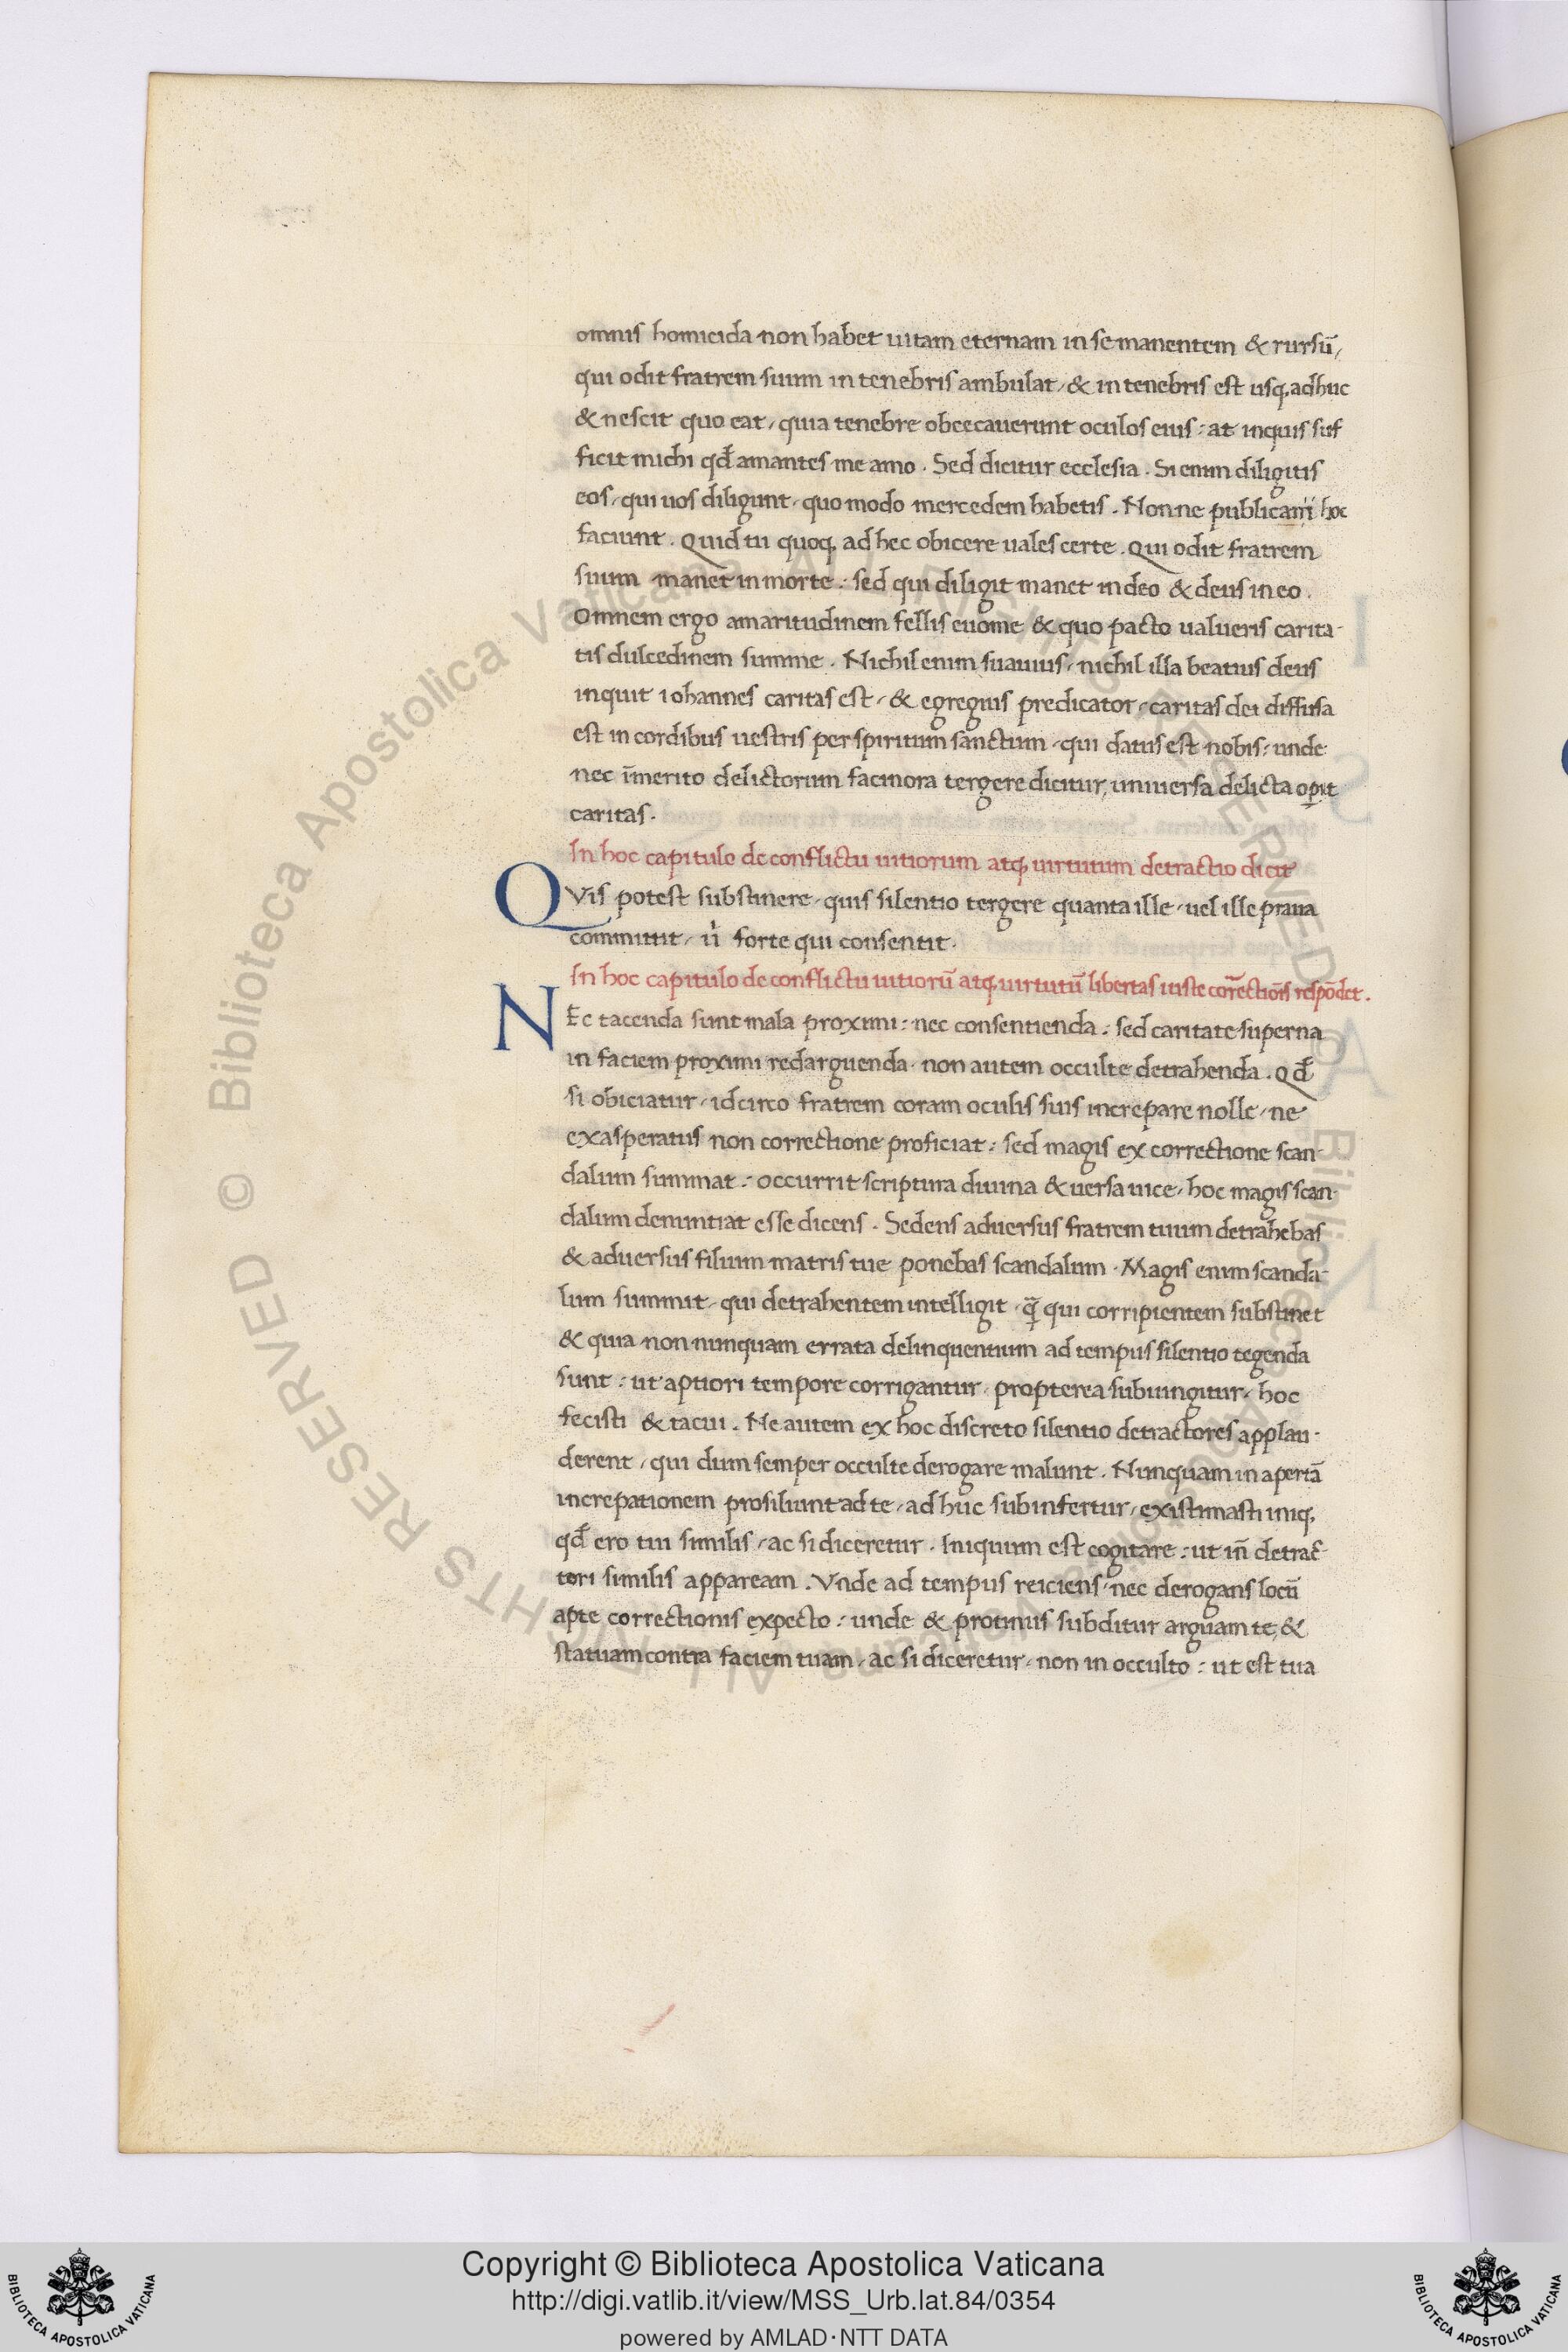 omnis homicida non habet uitam eternam in se manentem & rursū,
qui odit fratrem suum in tenebris ambulat, & in tenebris est usq; adhuc
& nescit quo eat, quia tenebre obcecauerunt oculos eius: at inquis suf
ficit michi qđ amantes me amo. Sed dicitur ecclesia. Si enim diligitis
eos, qui uos diligunt, quo modo mercedem habetis. Nonne publicani hoc
faciunt. Quid tu quoq; ad hec obicere uales certe. Qui odit fratrem
suum manet in morte: sed qui diligit manet in deo & deus in eo.
Omnem ergo amaritudinem fellis euome & quo pacto ualueris carita-
tis dulcedinem summe. Nichil enim suauius, nichil illa beatius deus
inquit iohannes caritas est, & egregius predicator, caritas dei diffusa
est in cordibus uestris per spiritum sanctum, qui datus est nobis, unde
nec īmerito delictorum facinora tergere dicitur, uniuersa delicta op̱it
caritas.
In hoc capitulo de conflictu uitiorum atq; uirtutum detractio dicit
QVis potest substinere, quis silentio tergere quanta ille, uel ille praua
committit, ů forte qui consentit.
In hoc capitulo de conflictu uitiorū atq; uirtutū libertas iuste corectiōis respōdet.
NEc tacenda sunt mala proximi: nec consentienda: sed caritate superna
in faciem proximi redarguenda, non autem occulte detrahenda. Qđ
si obiciatur, idcirco fratrem coram oculis suis increpare nolle, ne
exasperatus non correctione proficiat: sed magis ex correctione scan-
dalum summat: occurrit scriptura diuina & uersa uice, hoc magis scan-
dalum denuntiat esse dicens. Sedens aduersus fratrem tuum detrahebas
& aduersus filium matris tue ponebas scandalum. Magis enim scanda-
lum summit, qui detrahentem intelligit, q̄ qui corripientem substinet
& quia non nunquam errata delinquentium ad tempus silentio tegenda
sunt: ut aptiori tempore corrigantur, propterea subiungitur, hoc
fecisti & tacui. Ne autem ex hoc discreto silentio detractores applau-
derent, qui dum semper occulte derogare malunt. Nunquam in apertā
increpationem prosiliunt ad te, ad huc subinfertur, existimasti iniq;
qđ ero tui similis, ac si diceretur. Iniquum est cogitare: ut iñ detrac-
tori similis appaream. Vnde ad tempus reiciens, nec derogans locū
apte correctionis expecto: unde & protinus subditur arguam te, &
statuam contra faciem tuam, ac si diceretur, non in occulto: ut est tua
© Biblioteca Apostolica Vaticana ALL RIGHTS RESERVED
© Biblioteca Apostolica Vaticana ALL RIGHTS RESERVED
Copyright © Biblioteca Apostolica Vaticana
http://digi.vatlib.it/view/MSS_Urb.lat.84/0354
powered by AMLAD·NTT DATA
BIBLIOTECA APOSTOLICA VATICANA
BIBLIOTECA APOSTOLICA VATICANA